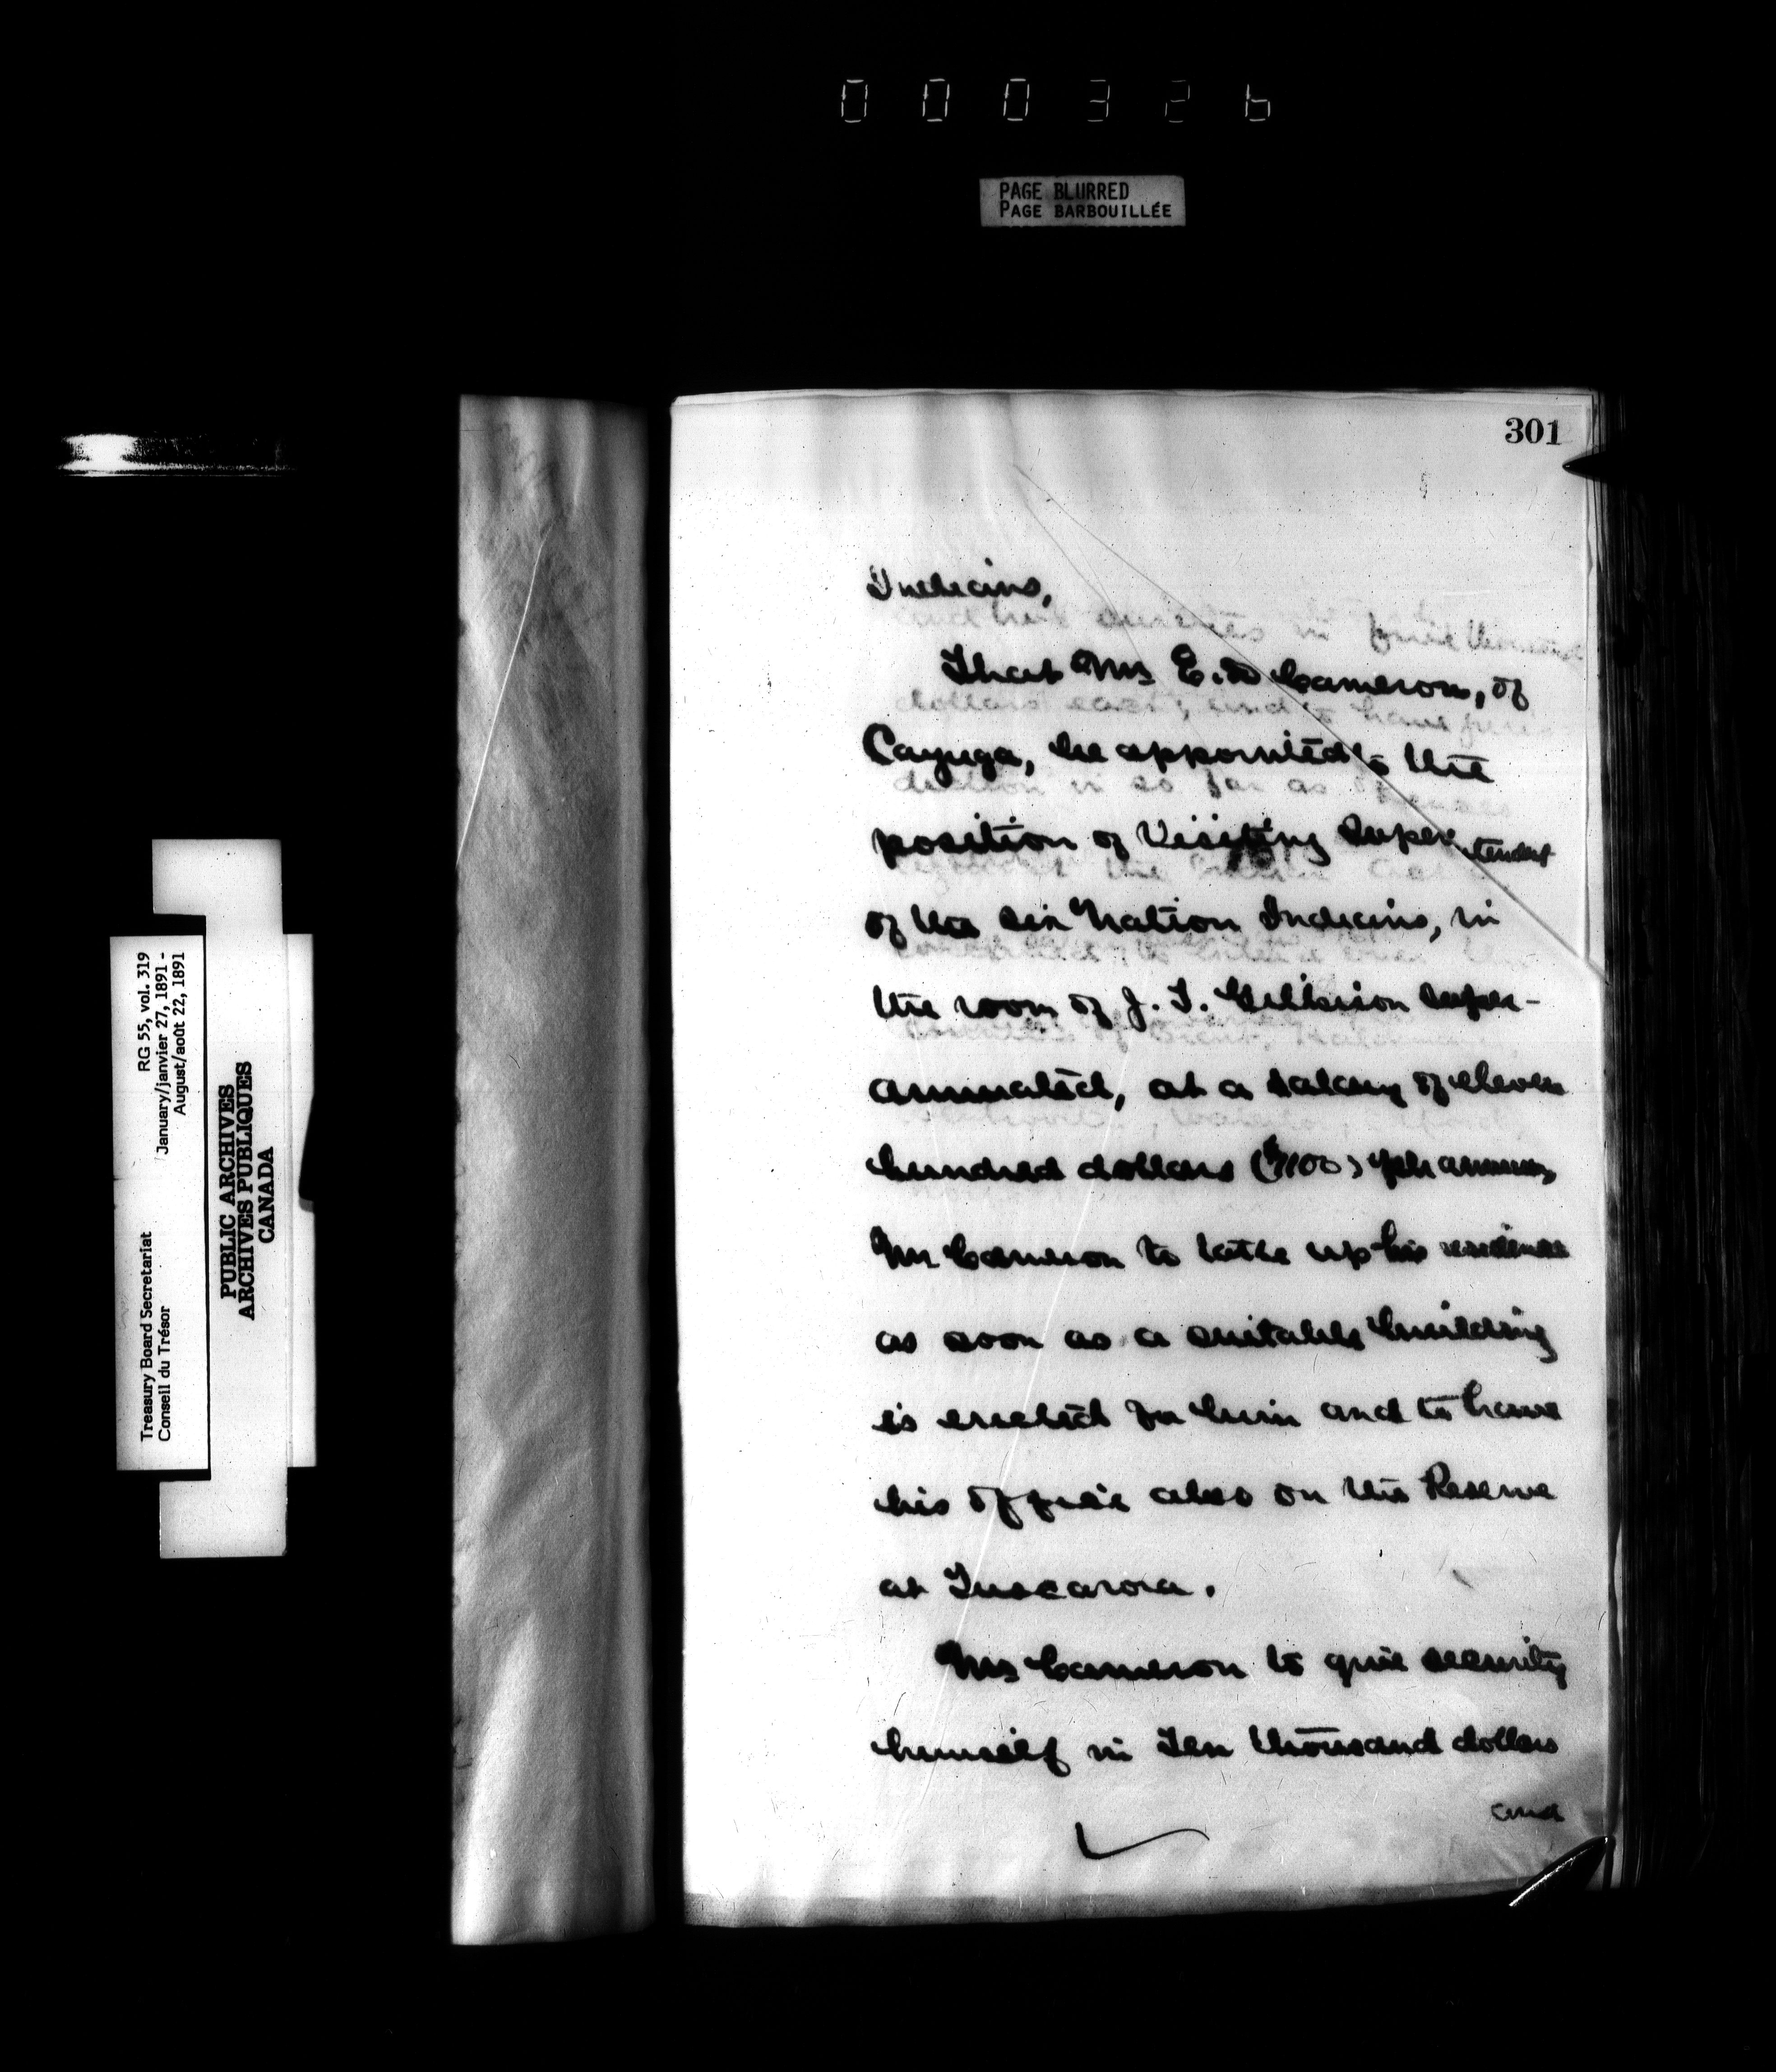 000326
PAGE BLURRED
PAGE BARBOUILLÉE
301
Indians,
That Mr E. D Cameron, of
Cayuga, be appointed to the
position of Visiting Superintendent
of the Six Nation Indians, in
the room of J. T. Gilkison super-
annuated, at a salary of eleven
hundred dollars ($1100) per annum,
Mr Cameron to take up his residence
as soon as a suitable building
is erected for him and to have
his office also on the Reserve
at Tuscarora.
Mr Cameron to give security
himself in Ten thousand dollars
and
RG 55, vol. 319
January/janvier 27, 1891 -
August/août 22, 1891
Treasury Board Secretariat
Conseil du Trésor
PUBLIC ARCHIVES
ARCHIVES PUBLIQUES
CANADA